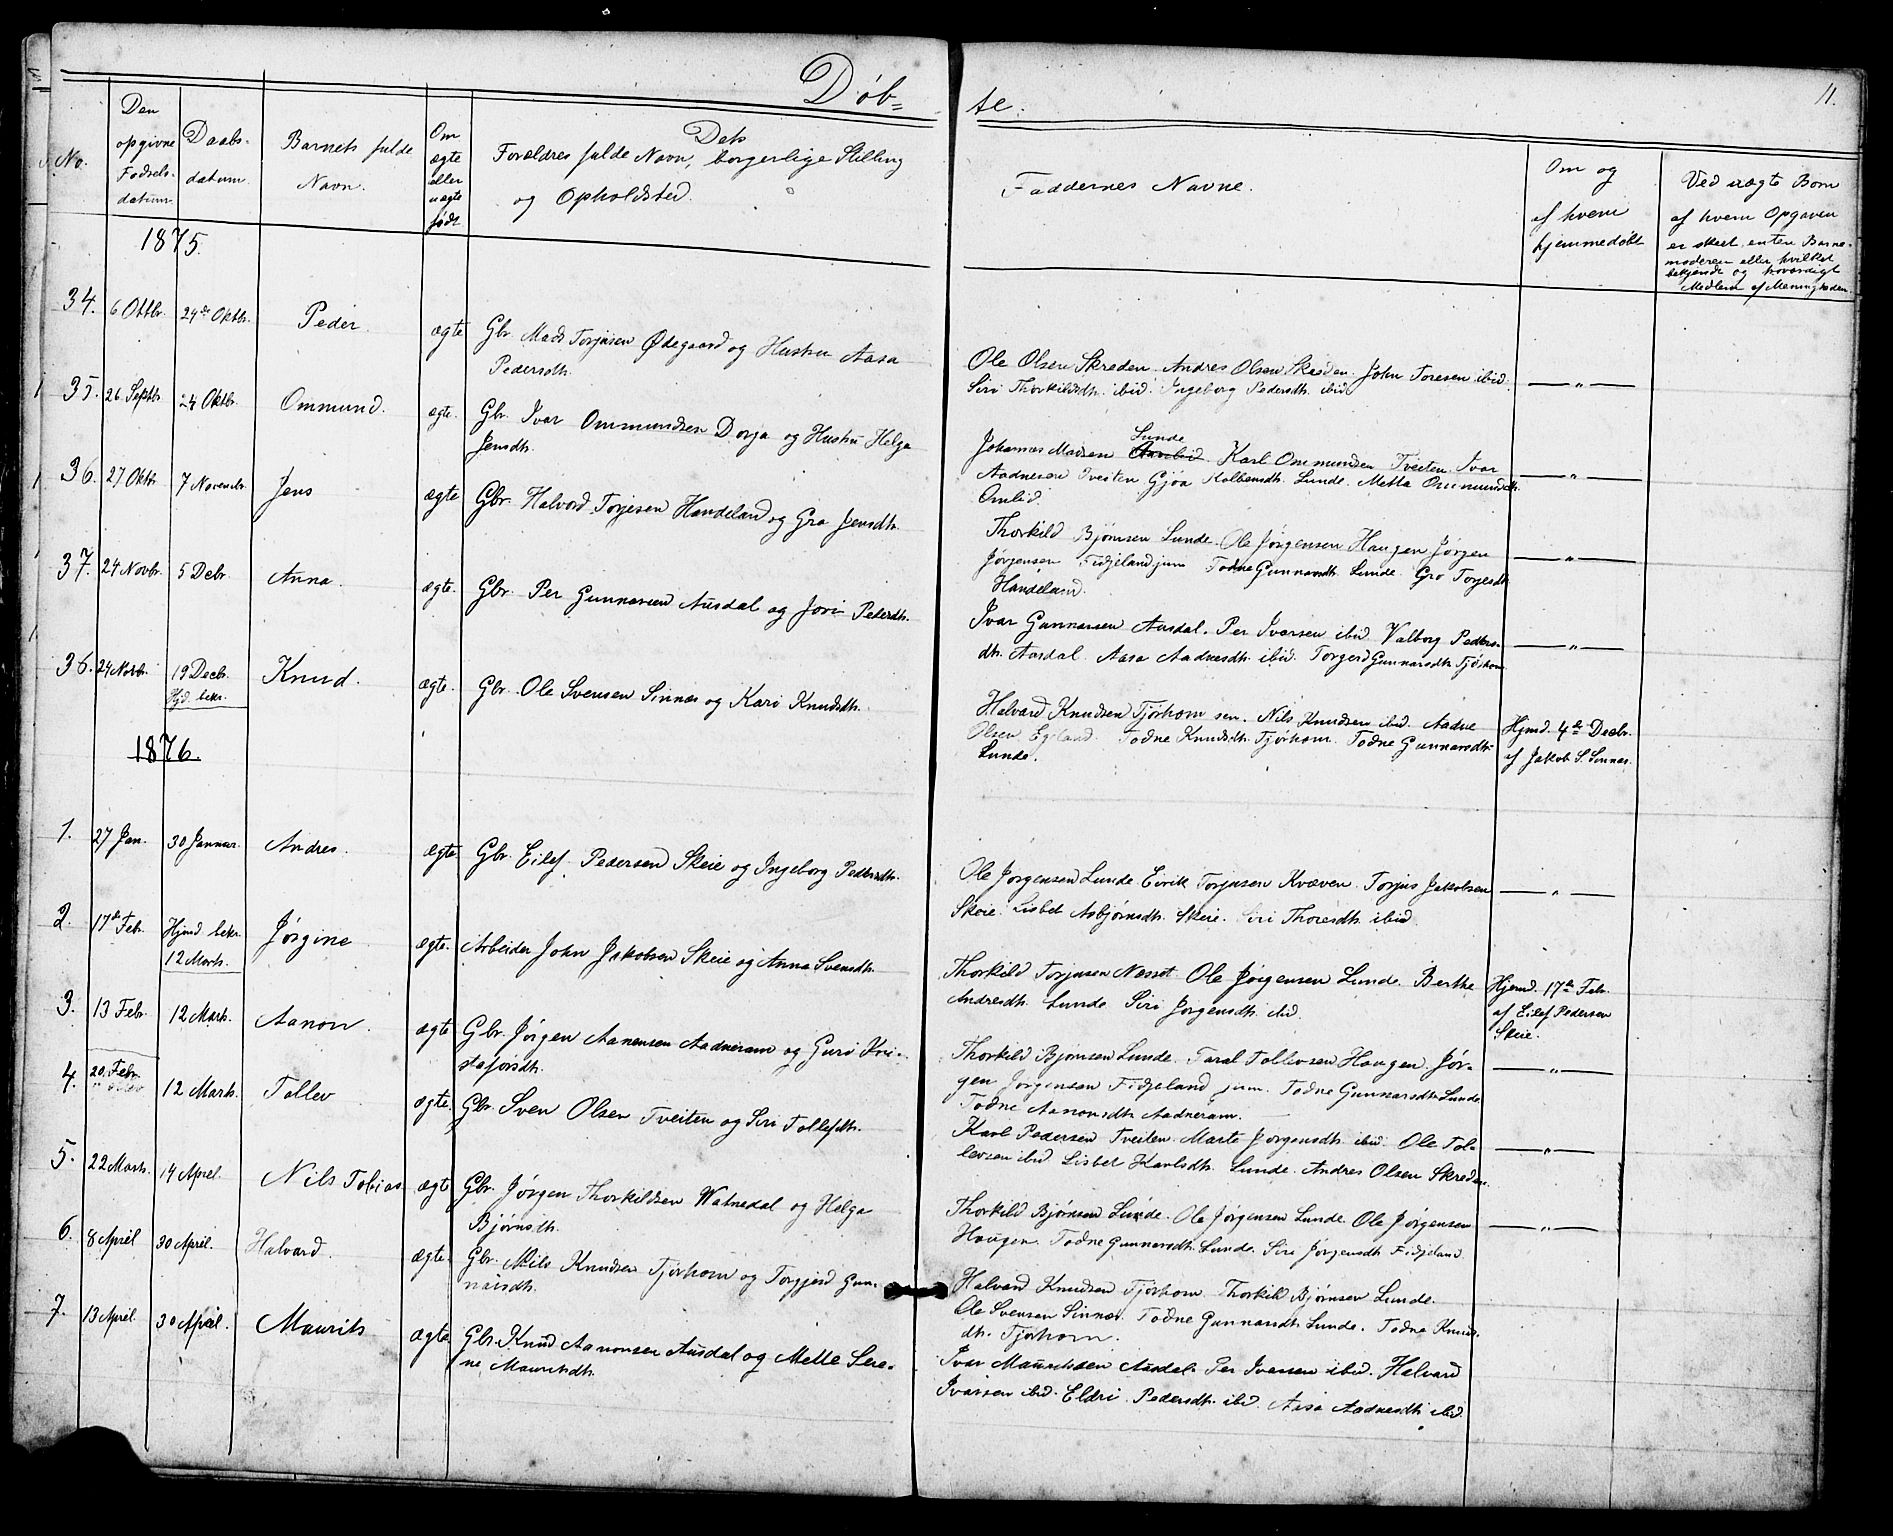 Døb=
te.
11.
No.
Den opgivne Fødselsdatum.
Daabsdatum.
Barnets fulde Navn.
Om ægte eller uægte født.
Dets
Forældres fulde Navn, borgerlige Stilling
og Opholdsted.
Faddernes Navne.
Om og
af hvem
hjemmedøbt
Ved uægte Børn
af hvem Opgaven
er skeet, enten Barne-
moderen eller hvilket
bekjendt og troværdigt
Medlem af Menigheden.
1875.
34. 6 Oktbr. 24de Oktbr. Peder. ægte Gbr. Mads Torjusen Ødegaard og Hustru Aasa
Pedersdtr.
Ole Olsen Skreden. Andres Olsen Skreden. John Toresen ibid.
Siri Thorkildsdtr. ibid. Ingeborg Pedersdtr. ibid. — „ —
35. 26 Septbr. 24 Oktbr. Ommund. ægte. Gbr. Ivar Ommundsen Dorja og Hustru Helga
Jensdtr.
Lunde
Johannes Madsen Karl Ommundsen Tveiten. Ivar
Aadnesen Tveiten Gjøa Kolbensdtr. Lunde. Metta Ommundsdtr. — „ —
Omlid.
36. 27 Oktbr. 7 Novembr. Jens ægte Gbr. Halvord Torjesen Handeland og Gro Jensdtr.
Thorkild Bjørnsen Lunde. Ole Jørgensen Haugen Jørgen
Jørgensen Fidjeland jun Todne Gunnarsdtr. Lunde. Gro Torjesdtr. — „ —
Handeland.
37. 24 Novbr. 5 Debr. Anna. ægte. Gbr. Per Gunnarsen Ausdal og Jori Pedersdtr.
Ivar Gunnarsen Ausdal. Per Ivarsen ibid. Valborg Peders-
dtr. Ausdal. Aasa Aadnesdtr. ibid. Torgerd Gunnarsdtr. Tjørhom — „ —
36. 24 Novbr. 19 Decbr. Knud. ægte. Gbr. Ole Svensen Sinnes og Kari Knudsdtr.
Hjd. bekr.
Halvard Knudsen Tjørhom sen. Nils Knudsen ibid. Aadne
Olsen Egeland. Todne Knudsdtr. Tjørhom. Todne Gunnarsdtr.
Lunde.
Hjmd. 4de Decbr.
af Jakob S. Sinnes.
1876.
1. 27 Jan. 30 Januar. Andres. ægte Gbr. Eilef Pedersen Skeie og Ingeborg Pedersdtr.
Ole Jørgensen Lunde Eirik Torjusen Kvæven. Torjus Jakobsen
Skeie. Lisbet Asbjørnsdtr. Skeie. Siri Thoresdtr. ibid. — „ —
2. 17de Febr. Hjmd bekr. 12 Marts. Jørgine ægte. Arbeider John Jakobsen Skeie og Anna Svensdtr.
Thorkild Torjusen Nesset. Ole Jørgensen Lunde. Berthe
Andresdtr. Lunde. Siri Jørgensdtr. ibid.
Hjemd. 17de Febr.
af Eilef Pedersen
Skeie.
3. 13 Febr. 12 Marts. Aanon. ægte Gbr. Jørgen Aanensen Aadneram og Guro Kri-
stofersdtr.
Thorkild Bjørnsen Lunde. Taral Tollevsen Haugen. Jør-
gen Jørgensen Fidjeland jun. Todne Gunnarsdtr. Lunde — „ —
Todne Aanonsdtr. Aadneram.
4. 20. Febr. 12 Marts. Tollev ægte. Gbr. Sven Olsen Tveiten og Siri Tollefsdtr.
Karl Pedersen Tveiten. Marte Jørgensdtr. ibid. Ole Tol-
levsen ibid Lisbet Karlsdtr. Lunde. Andres Olsen Skreden. — „ —
5. 22 Marts. 14 April. Nils Tobias ægte Gbr. Jørgen Thorkildsen Watnedal og Helga
Bjørnsdtr.
Thorkild Bjørnsen Lunde. Ole Jørgensen Lunde. Ole Jørgensen
Haugen. Todne Gunnarsdtr. Lunde. Siri Jørgensdtr. Fidjeland. — „ —
6. 8 April 30 April. Halvard. ægte Gbr. Nils Knudsen Tjørhom og Torgjerd Gun-
narsdtr.
Halvard Knudsen Tjørhom. Thorkild Bjørnsen Lunde.
Ole Svensen Sinnes. Todne Gunnarsdtr. Lunde. Todne Knuds-
dtr. Tjørhom.
7. 13 April 30 April. Maurits ægte Gbr. Knud Aanonsen Ausdal og Mette Sere-
ne Mauritsdtr.
Ivar Mauritsen Ausdal. Per Ivarsen ibid. Halvard
Ivarsen ibid. Eldri Pedersdtr. ibid. Aasa Aadnesdtr. ibid.